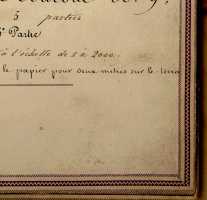 5 parties
e Partie
à l'échelle de 1 à 2000.
le papier pour deux mètres sur le terrain